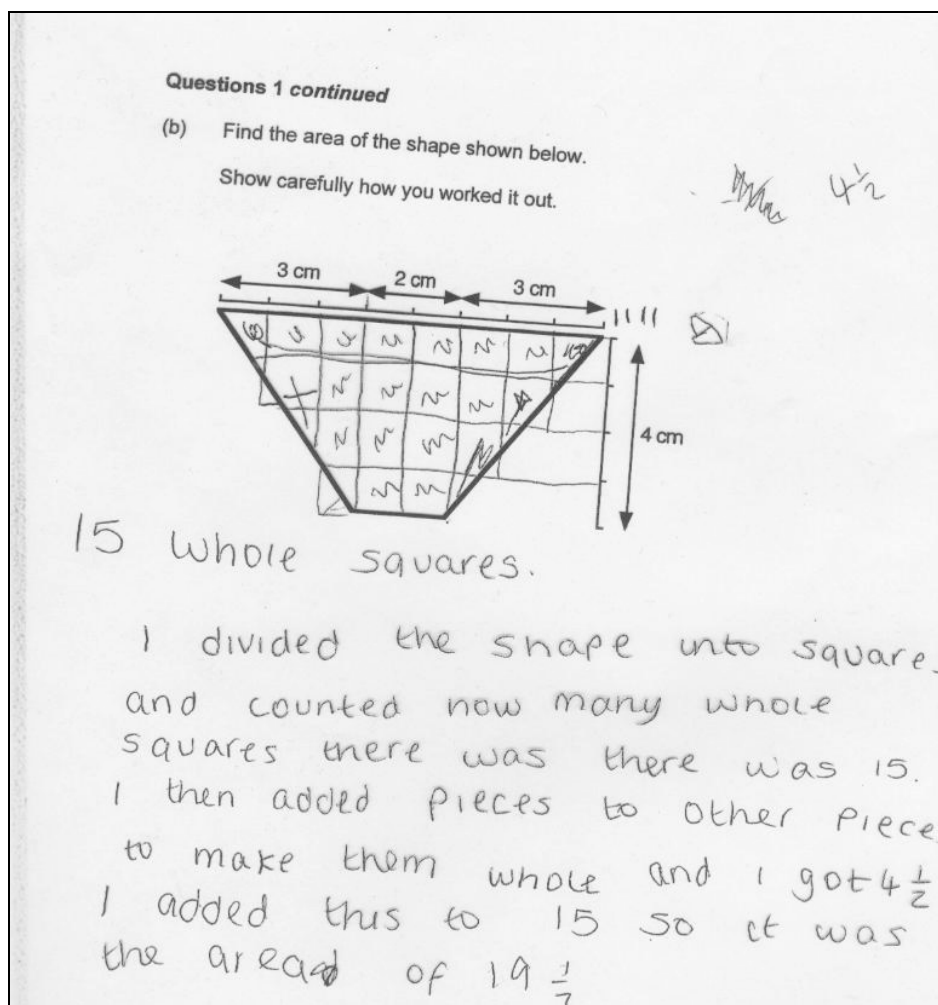 Questions 1 continued
(b) Find the area of the shape shown below.
Show carefully how you worked it out.
4 1/2
3 cm 2 cm 3 cm
4 cm
15 whole squares.
I divided the shape into square
and counted how many whole
squares there was there was 15.
I then added pieces to other piece
to make them whole and I got 4 1/2
I added this to 15 so it was
the area of 19 1/2